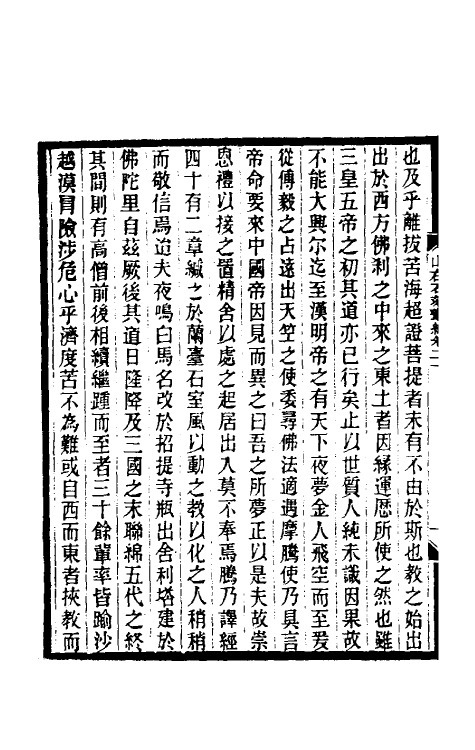 也及乎離拔苦海超證菩提者未有不由於斯也教之始出
出於西方佛刹之中來之東土者因緣運歴所使之然也雖
三皇五帝之初其道亦已行矣止以世質人純未識因果故
不能大興尔迄至漢明帝之有天下夜夢金人飛空而至爰
從傅毅之占遠出天竺之使委尋佛法適遇摩騰使乃具言
帝命要來中國帝因見而異之曰吾之所夢正以是夫故崇
恩禮以接之置精舍以處之起居出入莫不奉焉騰乃譯經
四十有二章緘之於蘭臺石室風以動之教以化之人稍稍
而敬信焉迨夫夜鳴白馬名改於招提寺瓶出舍利塔建於
佛陀里自茲厥後其道日隆降及三國之末聯綿五代之終
其間則有高僧前後相續繼踵而至者三十餘輩率皆踰沙
越漠冒險涉危心乎濟度苦不為難或自西而東者挾教而
山右石刻叢編卷二一